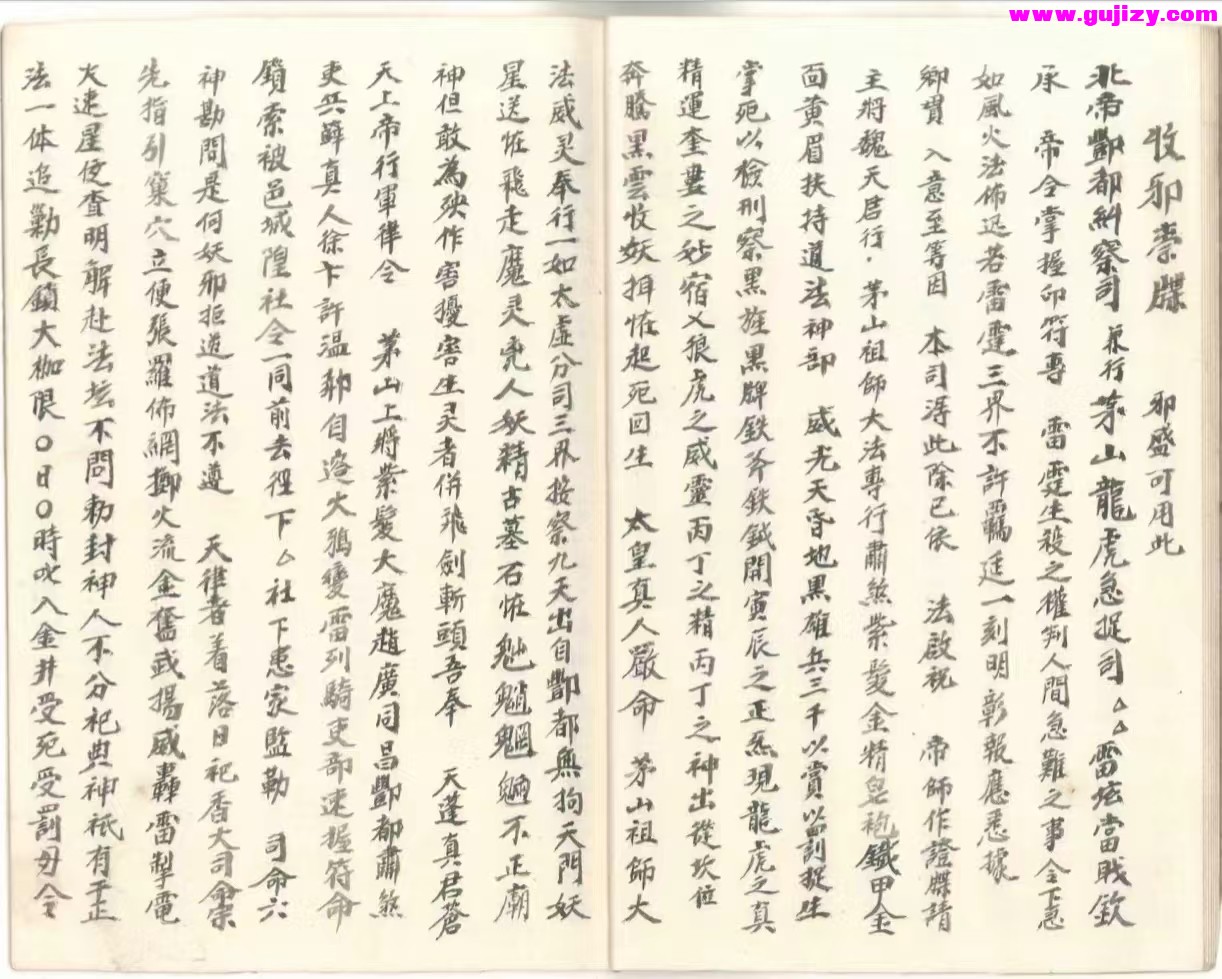 www.gujizy.com
收邪祟牒 邪盛可用此
北帝酆都糾察司 兼行茅山龍虎急捉司 △△雷坛當戝欽
承 帝令掌握印符專 雷霆生殺之權判人間急難之事令下急
如風火法佈迅若雷霆三界不許羈廷一刻明彰報應悉據
鄉貫 入意至等因 本司淂此除已依 法啟祝 帝師作證牒請
主將魏天君行，茅山祖師大法專行肅煞紫髮金精皂袍鐵甲金
面黃眉扶持道法神部 威光天昏地黑雄兵三千以賞以罰捉生
掌死以檢刑察黑旌黑牌鉄斧鉄鉞開寅辰之正炁現龍虎之真
精運奎婁之妙宿乂狼虎之威靈丙丁之精丙丁之神出從坎位
奔騰黑雲收妖捐恠起死回生 太皇真人嚴命 茅山祖師大
法威灵奉行一如太虛分司三界按察九天出自酆都無拘天門妖
星送恠飛走魔灵死人妖精古墓石恠魈魑魍魎不正廟
神但敢為殃作害擾害生灵者併飛劍斬頭吾奉 天蓬真君蒼
天上帝行軍律令 茅山上將紫髮大魔趙廣同昌酆都肅煞
吏兵蘚真人徐卞許溫勅自造火鴉變雷列騎吏部速握符命
鎖索被邑城隍社令一同前去徑下△社下患家監勒 司命六
神勘問是何妖邪拒逆道法不遵 天律者着落日祀香大司命宗
先指引窠穴立便張羅佈網擲火流金奮武揚威轟雷掣電
火速星夜查明解赴法坛不問勅封神人不分祀典神祇有干正
法一体追勦長鎖大枷限〇日〇時吆入金井受死受罰毋令